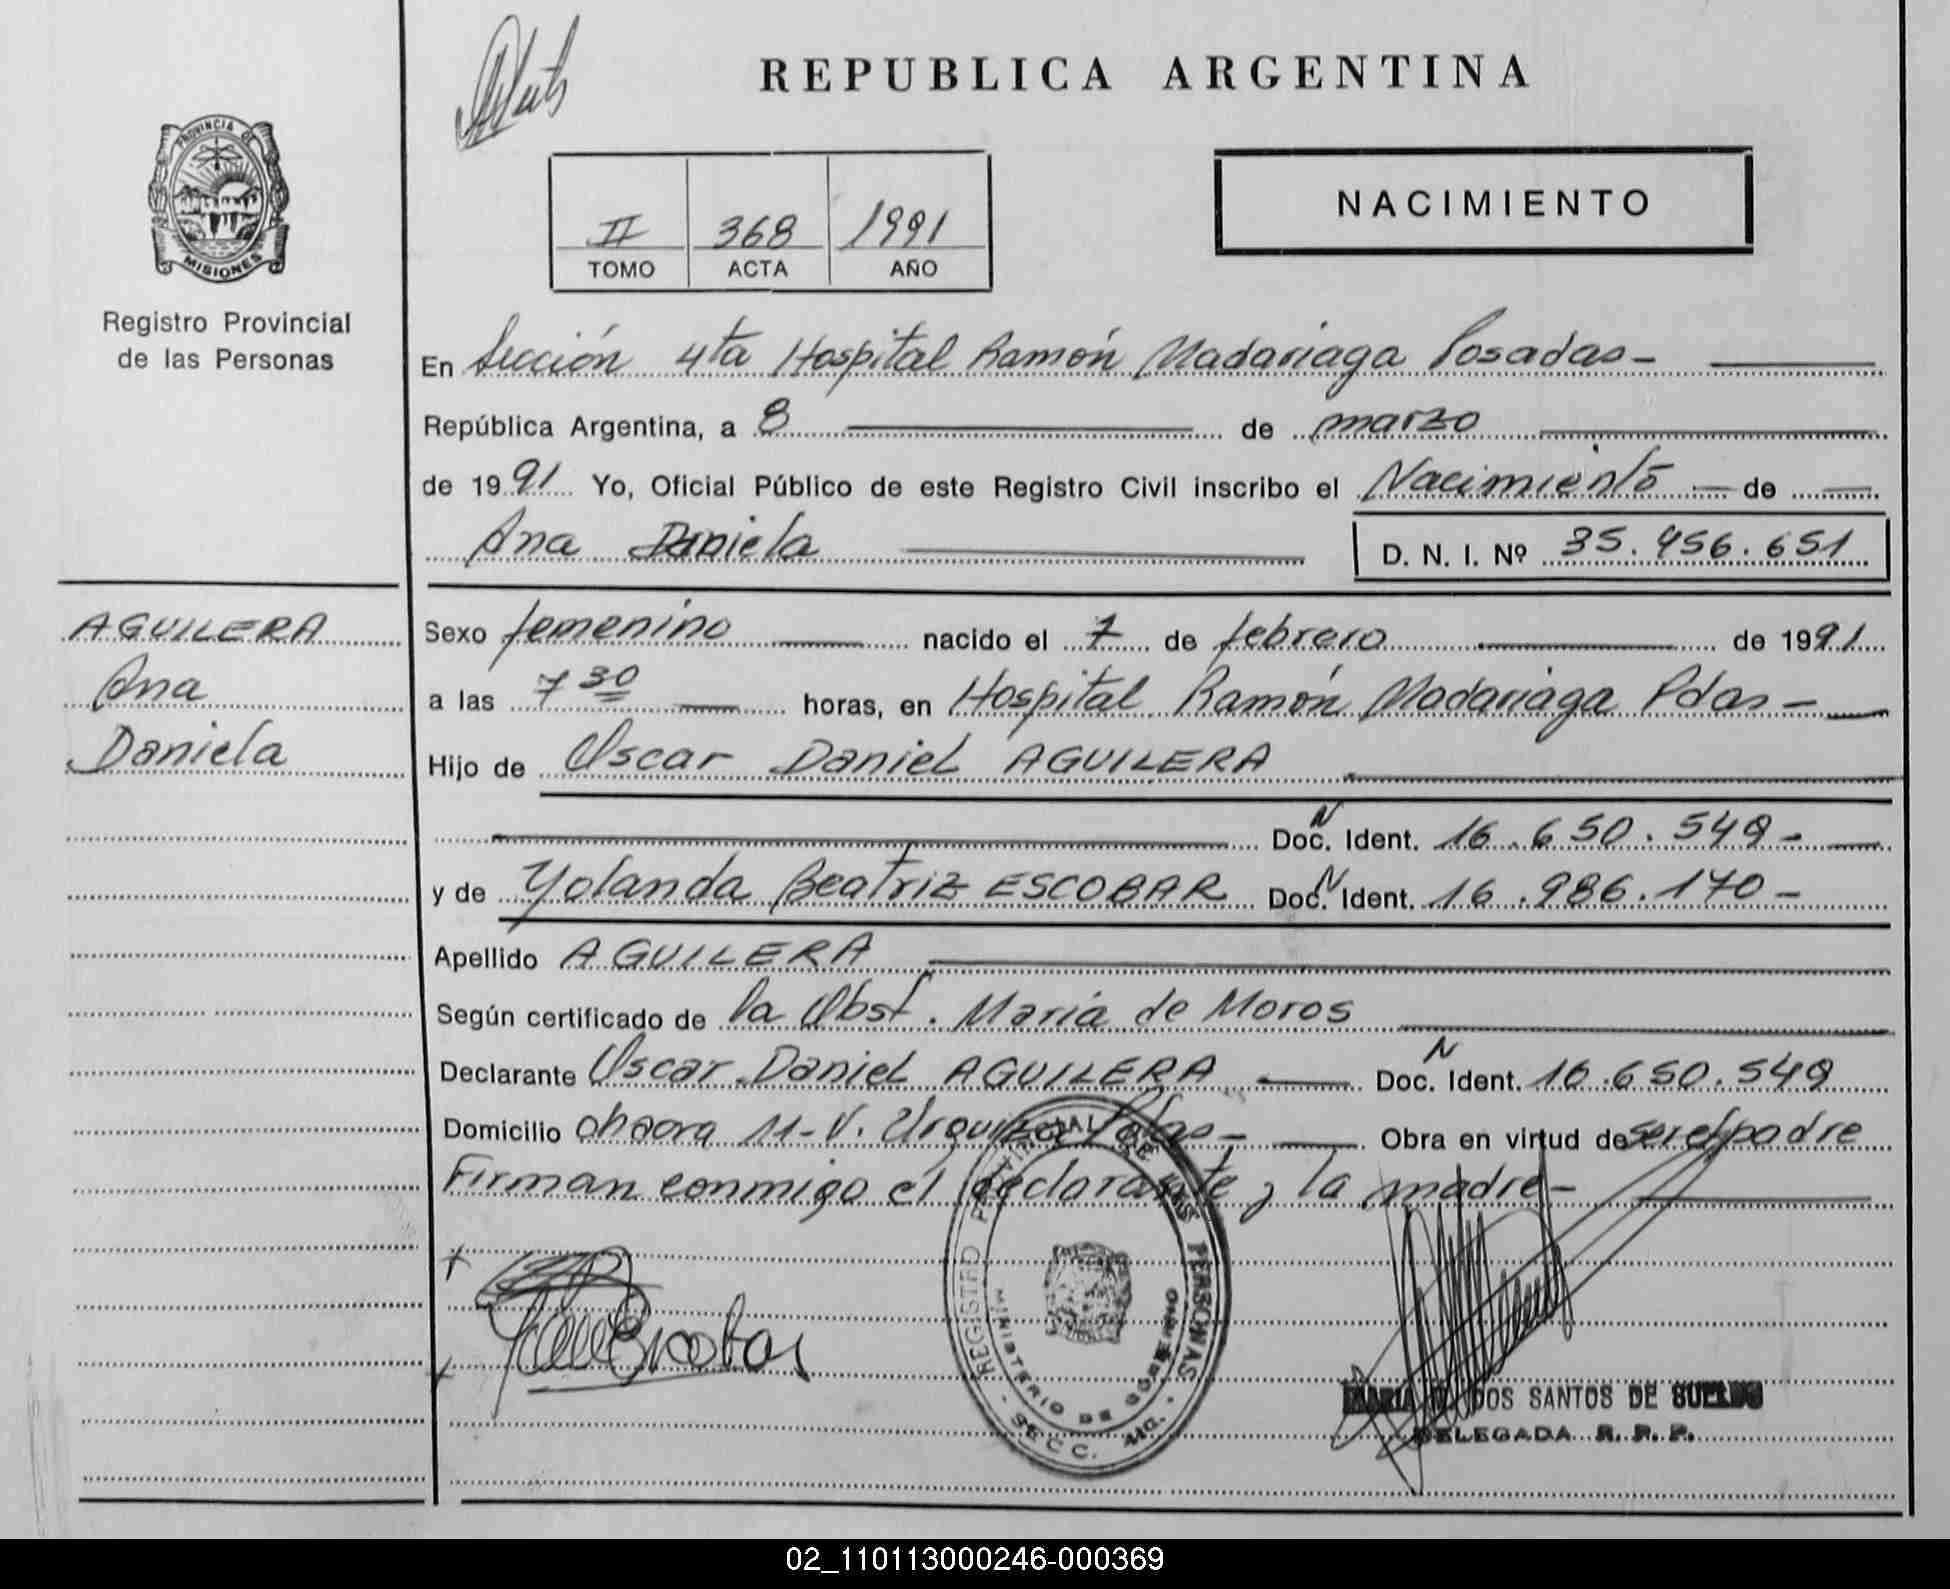 REPUBLICA ARGENTINA
PROVINCIA DE
MISIONES
Registro Provincial
de las Personas
II 368 1991
TOMO ACTA AÑO
NACIMIENTO
En Sección 4ta Hospital Ramón Madariaga Posadas-
República Argentina, a 8 de marzo
de 1991 Yo, Oficial Público de este Registro Civil inscribo el Nacimiento de
Ana Daniela
D. N. I. Nº 35.456.651
AGUILERA
Ana
Daniela
Sexo femenino nacido el 7 de febrero de 1991
a las 7 30 horas, en Hospital Ramón Madariaga Pdas-
Hijo de Oscar Daniel AGUILERA
Doc. N Ident. 16.650.549-
y de Yolanda Beatriz ESCOBAR Doc. N Ident. 16.986.170-
Apellido AGUILERA
Según certificado de la Obst. María de Moros
Declarante Oscar Daniel AGUILERA Doc. N Ident. 16.650.549
Domicilio chacra 11-V. Urquiza Pdas- Obra en virtud de ser el padre
Firman conmigo el declarante y la madre-
REGISTRO PROVINCIAL DE LAS PERSONAS
MINISTERIO DE GOBIERNO
SECC.
MARIA DOS SANTOS DE SUELDO
DELEGADA R. P. P.
02_110113000246-000369